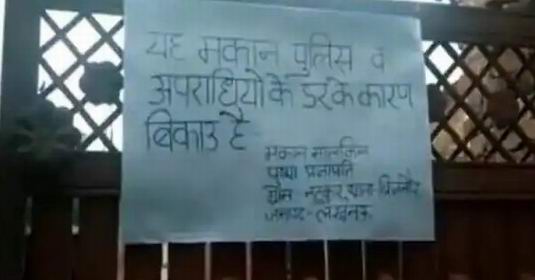 यह मकान पुलिस व
अपराधियो के डर के कारण
बिकाउ है
मकान मालकिन
पुष्पा प्रजापति
ग्राम नटकुर थाना-बिजनौर
जनपद-लखनऊ